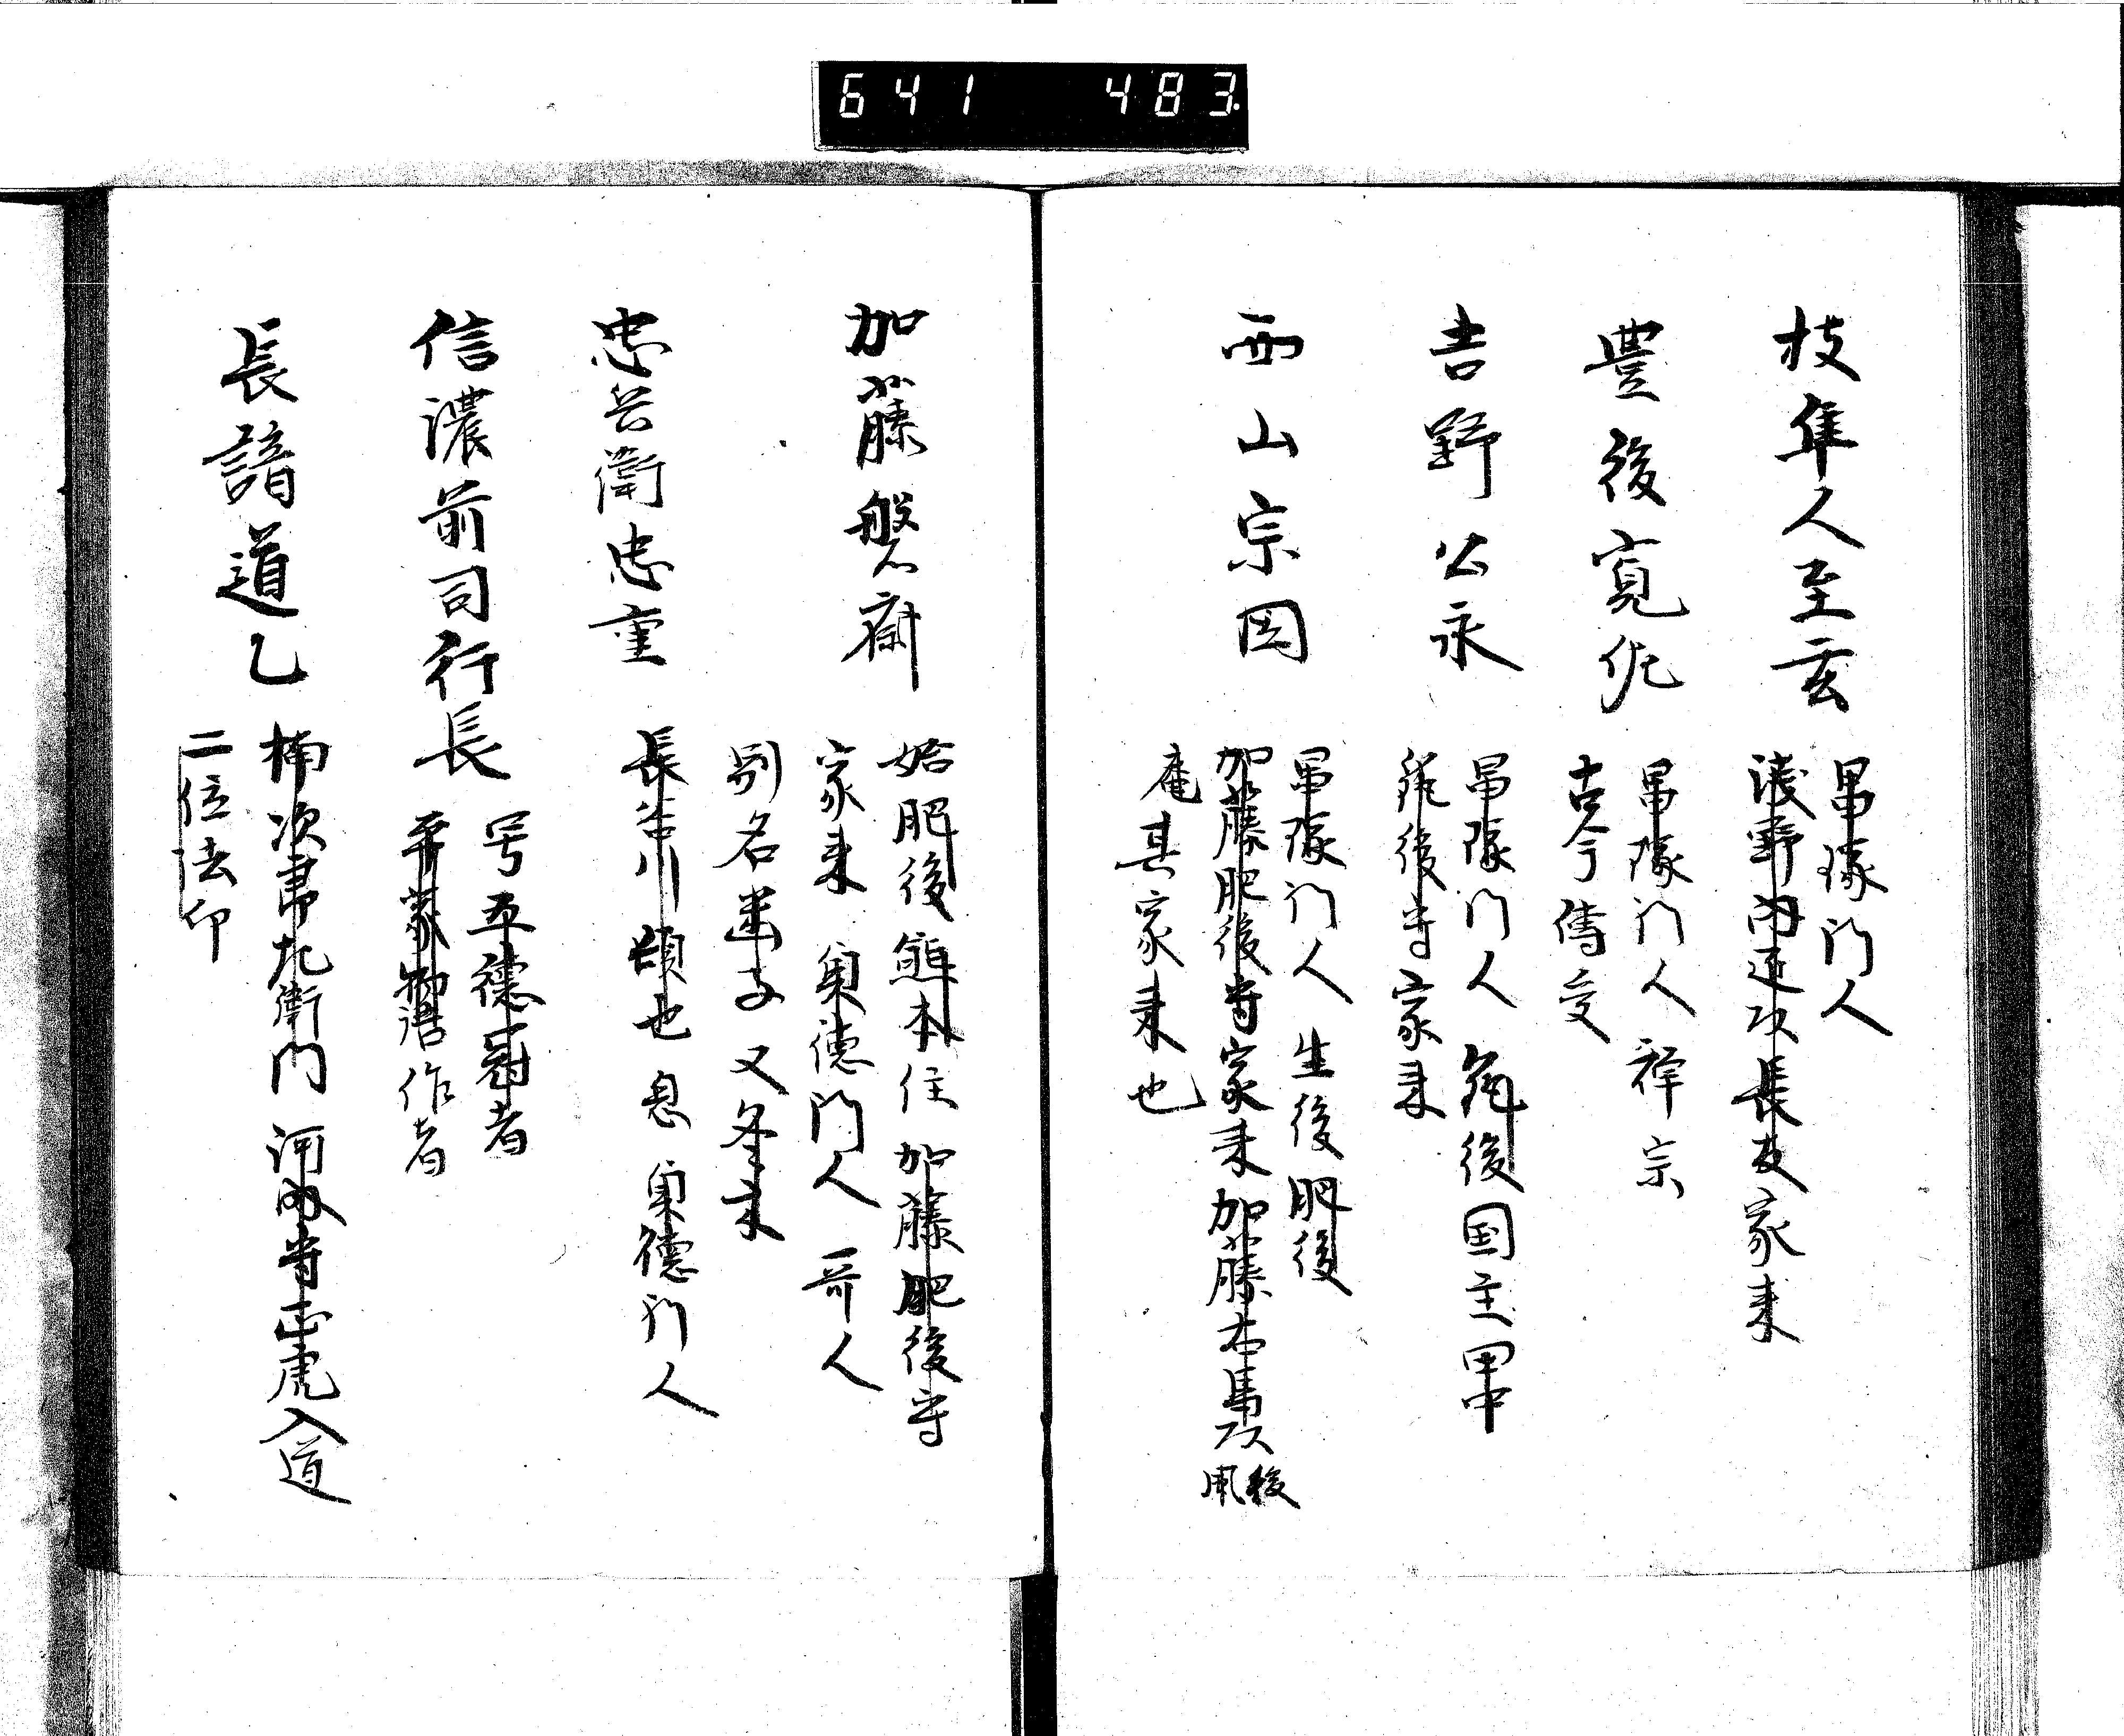 641 483
枝隼人至玄
昌琢门人
浅野内匠頭長友家来
豊後寛佐
昌琢门人 禅宗
古今傳受
吉野公永
昌琢门人 筑後国主田中
筑後守家来
西山宗因
昌琢门人 生後肥後
加藤肥後守家来加藤右馬頭後風
庵其家来也
加藤盤斎
始肥後熊本住加藤肥後守
家来 貞德门人 哥人
別名 又冬木
忠兵衛忠重
長谷川頭也 息 貞德门人
信濃前司行長
号五德冠者
平家物語作者
長諳道乙
楠次郎左衛门 河内守正虎入道
二位法印